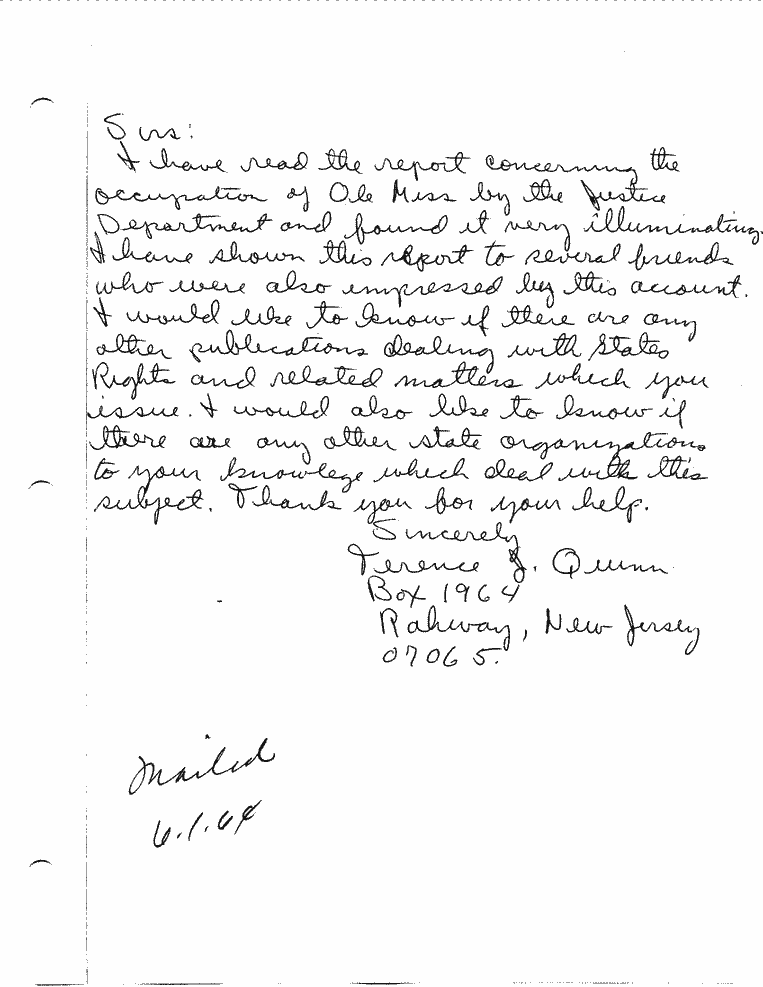 Sirs:
I have read the report concerning the
occupation of Ole Miss by the Justice
Department and found it very illuminating.
I have shown this report to several friends
who were also impressed by this account.
I would like to know if there are any
other publications dealing with States
Rights and related matters which you
issue. I would also like to know if
there are any other state organizations
to your knowlege which deal with this
subject. Thank you for your help.
Sincerely
Terence J. Quinn
Box 1964
Rahway, New Jersey
07065.
Mailed
6.1.64